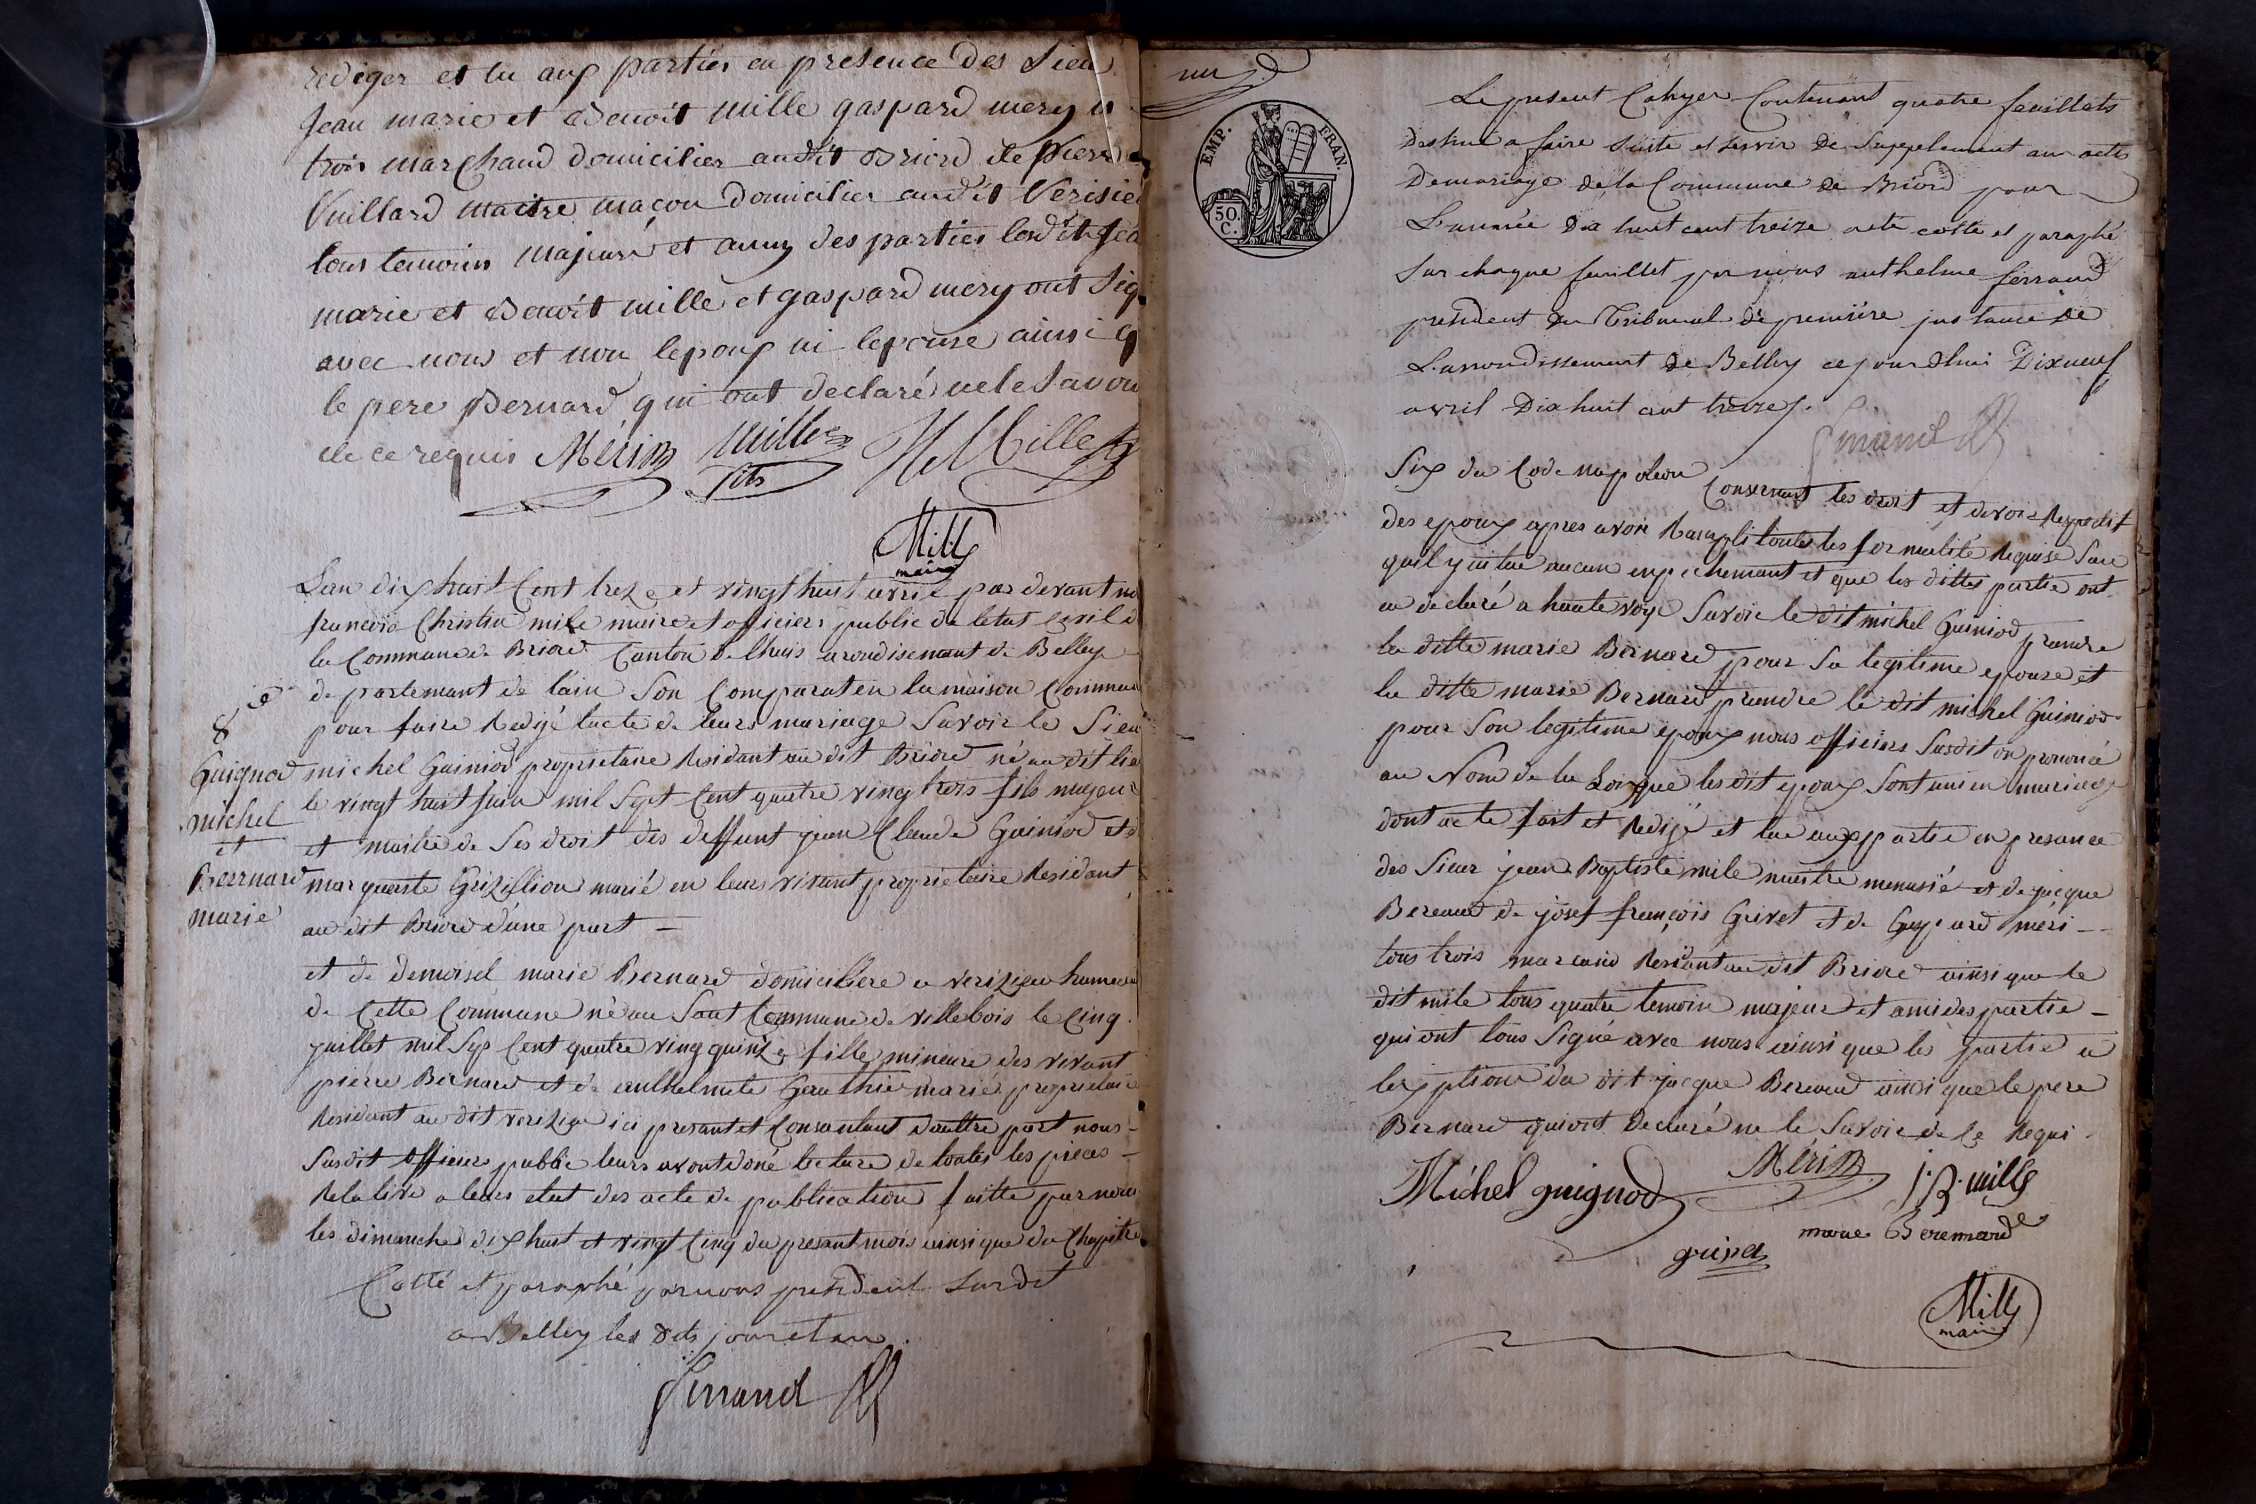 rediger et lu aux parties en presence des Sieu
Jean marie et Benoit mille gaspard mery
trois marchand domicilier audit Briord de Pierre
Vuillard maitre maçon domicilier audit Verisie
tous temoins majeure et amy des parties lesdit Jea
marie et Benoit mille et gaspard mery ont Sig
avec nous et non lepoux ni lepouse ainsi q
le pere Bernard qui ont declaré ne le Savoir
de ce requis Mérin Mille H Mille
fils
Mille
maire
8e
Guignod
michel
et
Berrnard
marie
Lan dix huit Cent treze et vingt huit avril par devant no
francois Christin mile maire et officiers public de letat Civil d
la Commune de Briord Canton de lhuis arondisemant de Belley
de partemant de lain Son Comparut en la maison Commun
pour faire Redigé lacte de leurs mariage Savoir le Sieu
michel Guiniod proprietaire Residant au dit Briord né au dit lie
le vingt huit juin mil Sept Cent quatre ving trois fils majeur
et maitre de Ses droit des deffunt jean Claude Guiniod et d
marguerite Grizillion marié en leurs vivant proprietaire Residant
au dit Briord d'une part
et de demoisel marie Bernard domiciliere a verizieu hameau
de Cette Commune né au Saut Commune de villebois le Cinq
juillet mil Sep Cent quatre ving quinze fille mineure des vivant
pierre Bernard et de anthelmete Gauthie marié proprietaire
Residant au dit verizieu ici presant et Consantant d'auttre part nous
Susdit officiers public leurs avont doné lecture de toutes les pieces
Relative a leurs etat des acte de publication faitte par nous
les dimanche dix huit et vingt Cinq du presant mois ainsi que du Chapitre
Cotté et paraphé par nous president Susdit
a Belley les dits jour et an
Ferrand
EMP. FRAN.
50.
C.
Le present Cahyer Contenant quatre feuillets
destiné a faire Suite et servir de Suppelement aux actes
De mariage de la Commune de Briord pour
L'année Dix huit cent treize a ete cotté et paraphé
Sur chaque feuillet par nous anthelme ferrand
president du Tribunal de premiere instance de
L'arrondissement de Belley ce jourdhui Dixneuf
avril Dix huit cent treize.
Ferrand
Six du Code napoleon Consernant les droit et devoir Respectif
des epoux apres avoir Ranpli toutes les formalité Requise Sans
quil y ait ue aucun enpechemant et que les dittes partie ont
ue declaré a haute voye Savoir le dit michel Guiniod prandre
la ditte marie Bernard pour Sa legitime epouse et
la ditte marie Bernard prandre le dit michel Guiniod
pour Son legitime epoux nous officiers Susdit on prononcé
au Nom de la Loix que les dit epoux Sont uni en mariage
dont acte fait et Redijé et lue aux partie en presance
des Sieur jean Baptiste mile maitre menusié et de jacque
Bereaud de josef françois Grivet et de Gaspard méri
tous trois marcand Residant au dit Briord ainsi que le
dit mile tous quatre temoin majeur et ami des partie
qui ont tous Signé avec nous ainsi que les partie a
lexption du dit jacque Bereaud ainsi que le pere
Bernard qui ont Declaré ne le Savoir de Ce Requi
Michel guignod Mérin J. B. mille
marie Berernard
grivet
Mille
maire